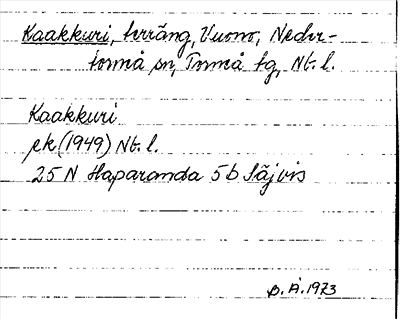 Kaakkuri, terräng, Vuono, Neder-
torneå sn, Torneå tg, Nb. l.
Kaakkuri
ek (1949) Nb. l.
25 N Haparanda 5 b Säjvis
B. Å. 1973